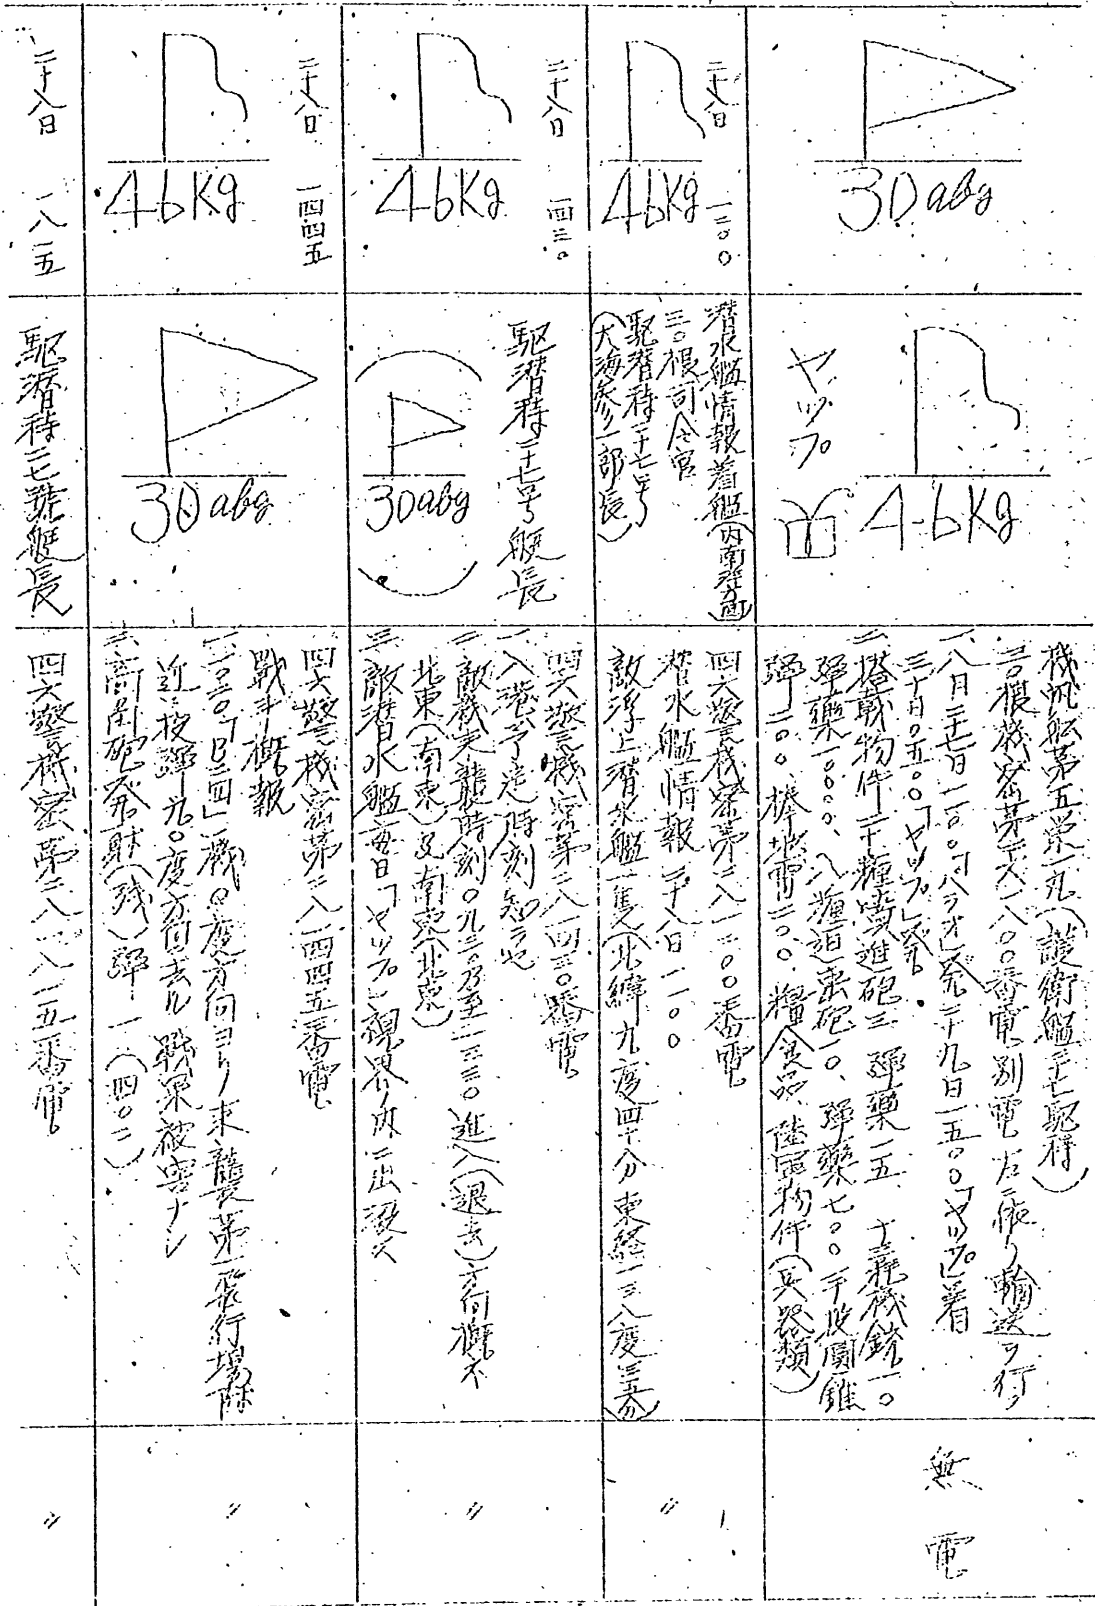 30abg
46Kg
ヤップ
機帆船第五栄丸(護衛艦二十七駆特)
三〇根機密第二六一八〇〇番電別電左ニ依リ輸送ヲ行フ
一、八月二十七日一一〇〇「パラオ」発二十九日一五〇〇「ヤップ」着
三十日〇五〇〇「ヤップ」発
二、搭載物件二十糎噴進砲三 弾薬一五 十三粍機銃一〇
弾薬一〇〇〇〇、八糎迫撃砲一〇、弾薬七〇〇
弾二〇〇、棒地雷二〇〇、糧食品、陸軍物件(兵器類)
無電
二十八日
一二〇〇
46Kg
潜水艦情報着艦(内南洋方面)
三〇根司令官
駆潜特二十七号
(大海参一部長)
四六警機密第二八一二〇〇番電
潜水艦情報 二十八日一一〇〇
敵浮上潜水艦一隻(北緯九度四十分東経一三八度三五分)
〃
二十八日
一四三〇
46Kg
駆潜特二十七号艇長
(30abg)
四六警機密第二八一四三〇番電
一、入港予定時刻知ラセ
二、敵機来襲時刻〇九三〇乃至一三三〇進入(退去)方向概ネ
北東(南東)及南東(北東)
三、敵潜水艦毎日「ヤップ」視界内ニ出没ス
〃
二十八日
一四四五
46Kg
30abg
四六警機密第二八一四四五番電
戦斗概報
一、一〇三〇「B二四」一機〇度方向ヨリ来襲第一飛行場附
近ニ投弾九〇度方向去ル 戦果被害ナシ
二、高角砲発射(残)弾 一一(四〇二)
〃
二十八日
一八一五
駆潜特二七号艇長
四六警機密第二八一八一五番電
〃